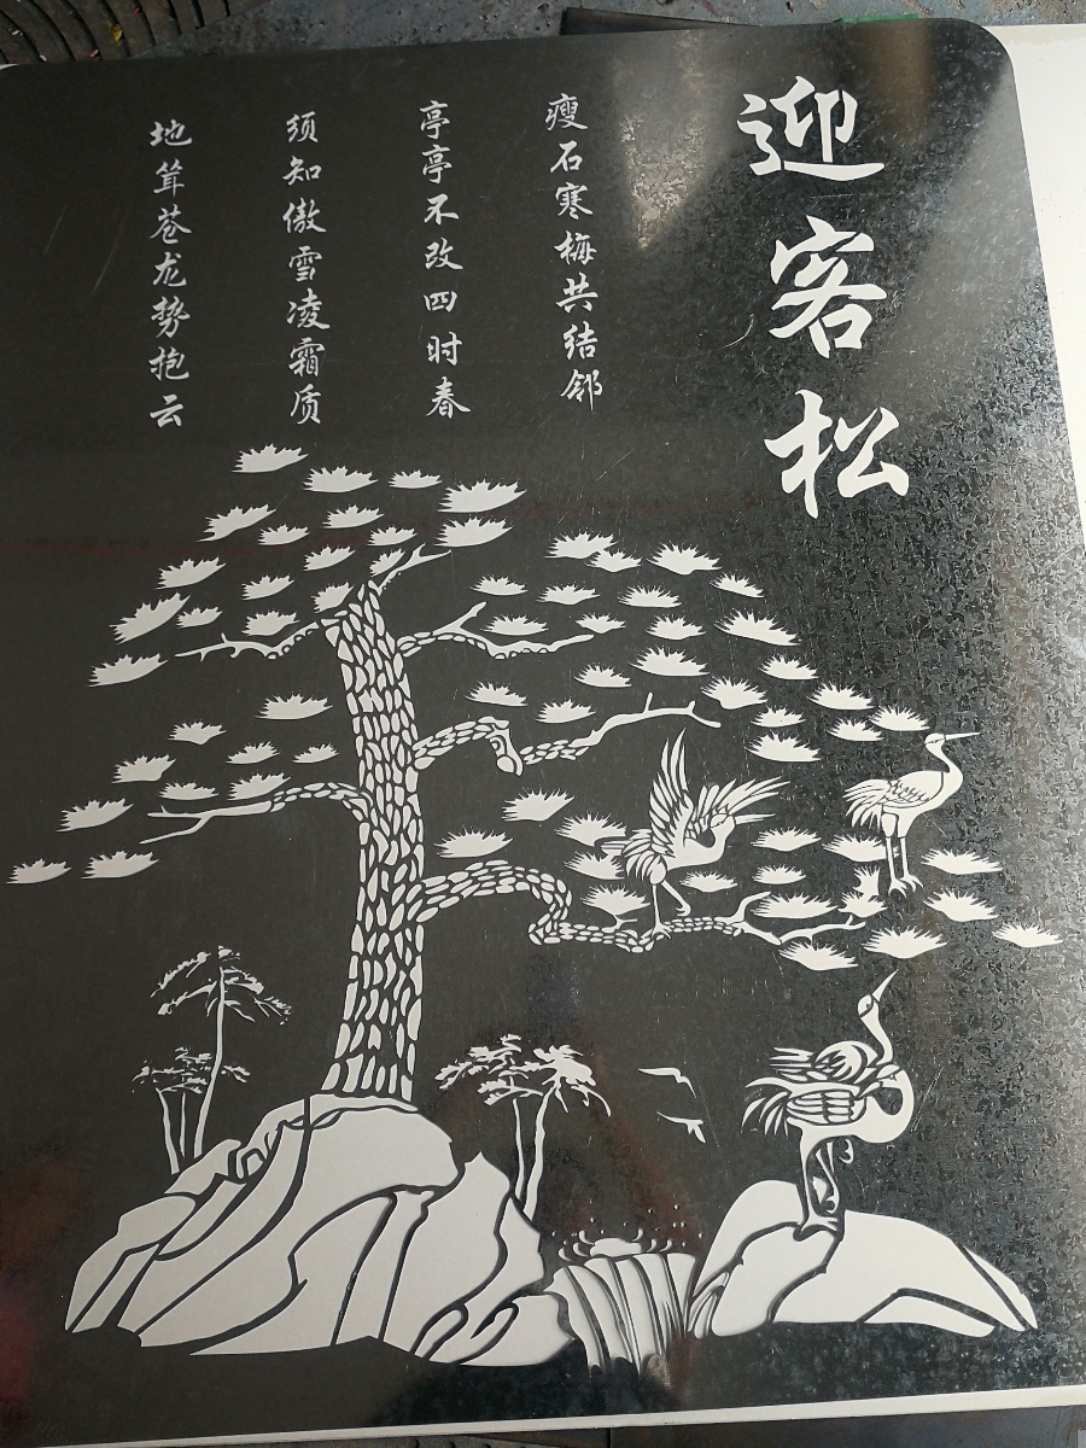 迎客松
瘦石寒梅共结邻
亭亭不改四时春
须知傲雪凌霜质
地耸苍龙势抱云